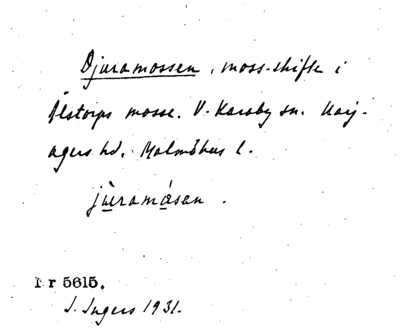 Djuramossen, moss-skifte i
Ålstorps mosse. V. Karaby sn. Harj-
agers hd. Malmöhus l.
jùramåsan.
r 5615.
I. Ingers 1931.